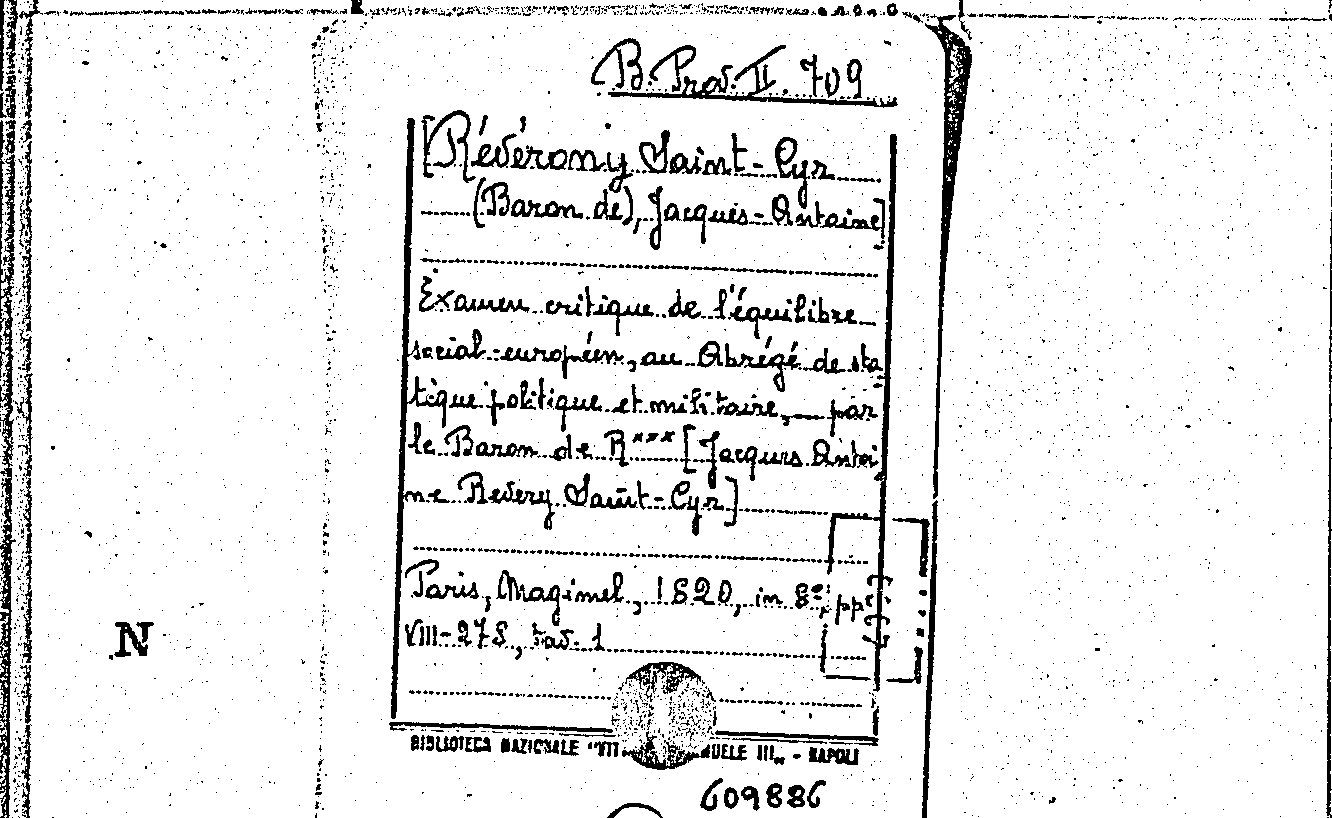 B. Prov. II. 709
[Révérony Saint-Cyr
(Baron de), Jacques-Antoine]
Examen critique de l'équilibre
social-européen, ou Abrégé de sta
tique politique et militaire, — par
le Baron de R*** [Jacques Antoi
ne Revery Saint-Cyr]
Paris, Magimel, 1820, in 8º, pp.
VIII-278, tav. 1
N
BIBLIOTECA NAZIONALE "VIT UELE III„ - NAPOLI
609886